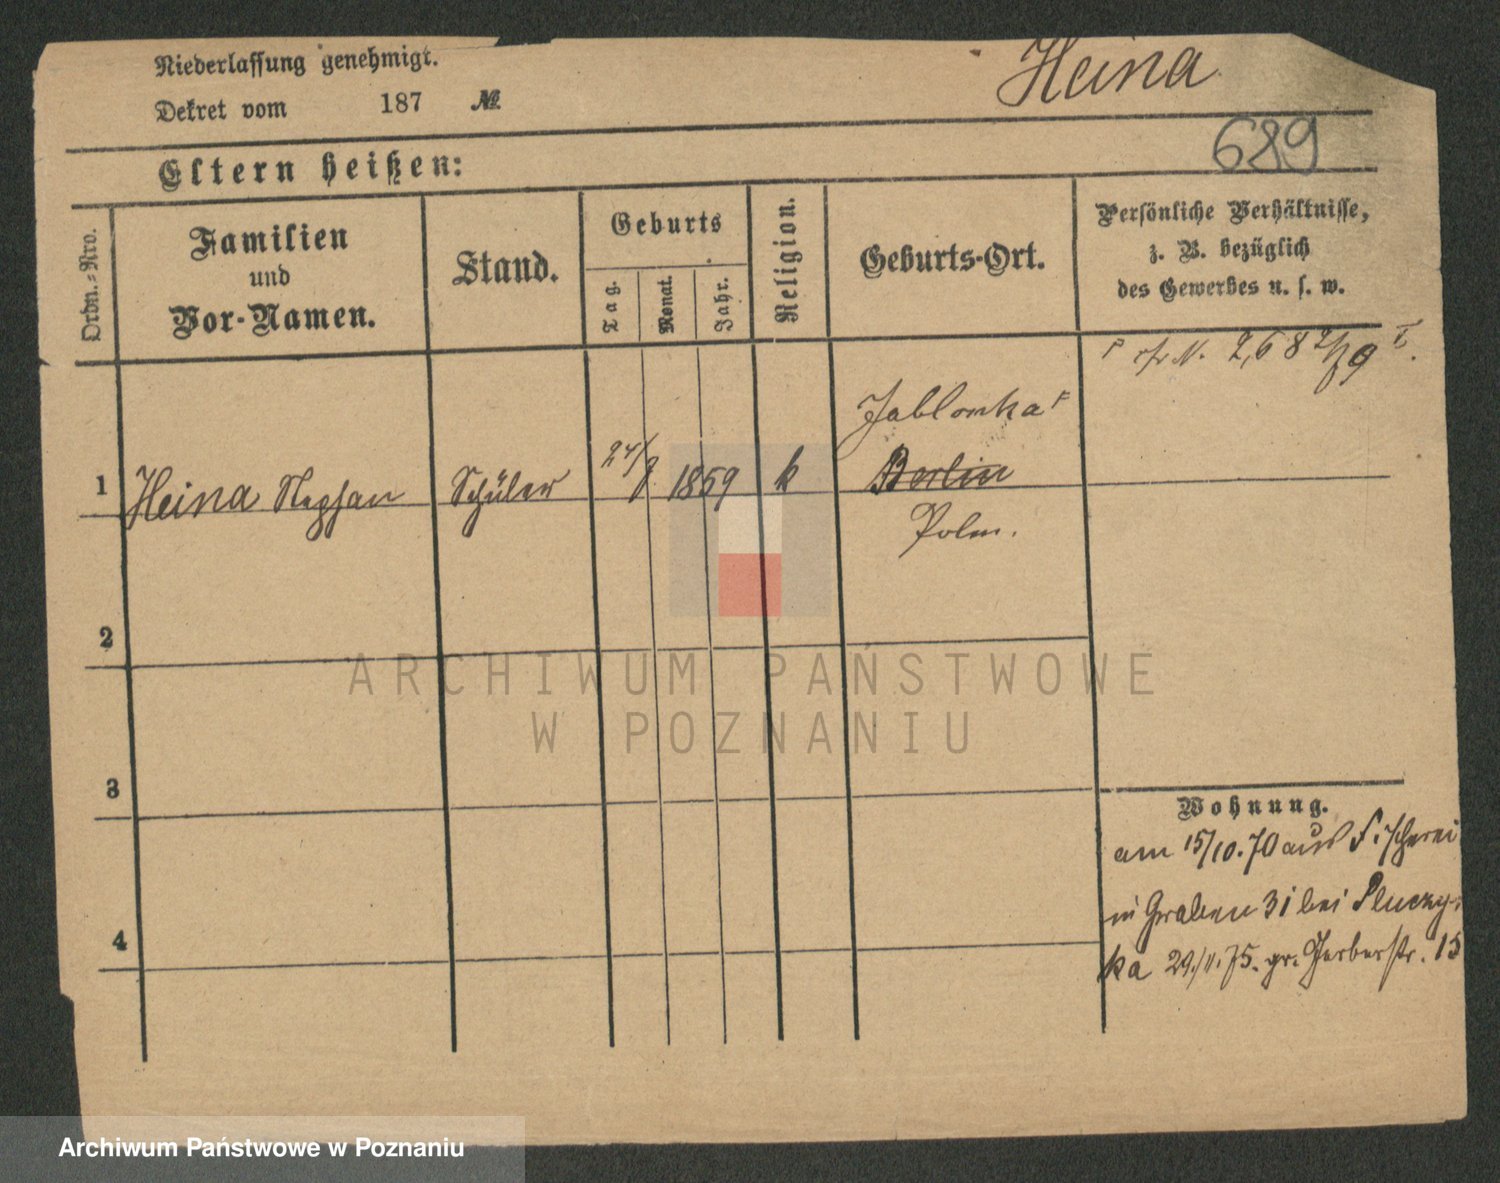 Niederlassung genehmigt.
Dekret vom 187 №
Heina
689
Eltern heißen:
Ordn.-Nro.
Familien
und
Vor-Namen.
Stand.
Geburts
Tag.
Monat.
Jahr.
Religion.
Geburts-Ort.
Persönliche Verhältnisse,
z. B. bezüglich
des Gewerbes u. s. w.
1
Heina
Schüler
24/9. 1859
k
Jablonka
Berlin
Polen.
2
3
4
Wohnung.
am 15/10. 70 aus Fischerei
in Graben 31 bei Pluczy-
ka 29./11. 75. gr. Gerberstr. 15
ARCHIWUM PAŃSTWOWE
W POZNANIU
Archiwum Państwowe w Poznaniu